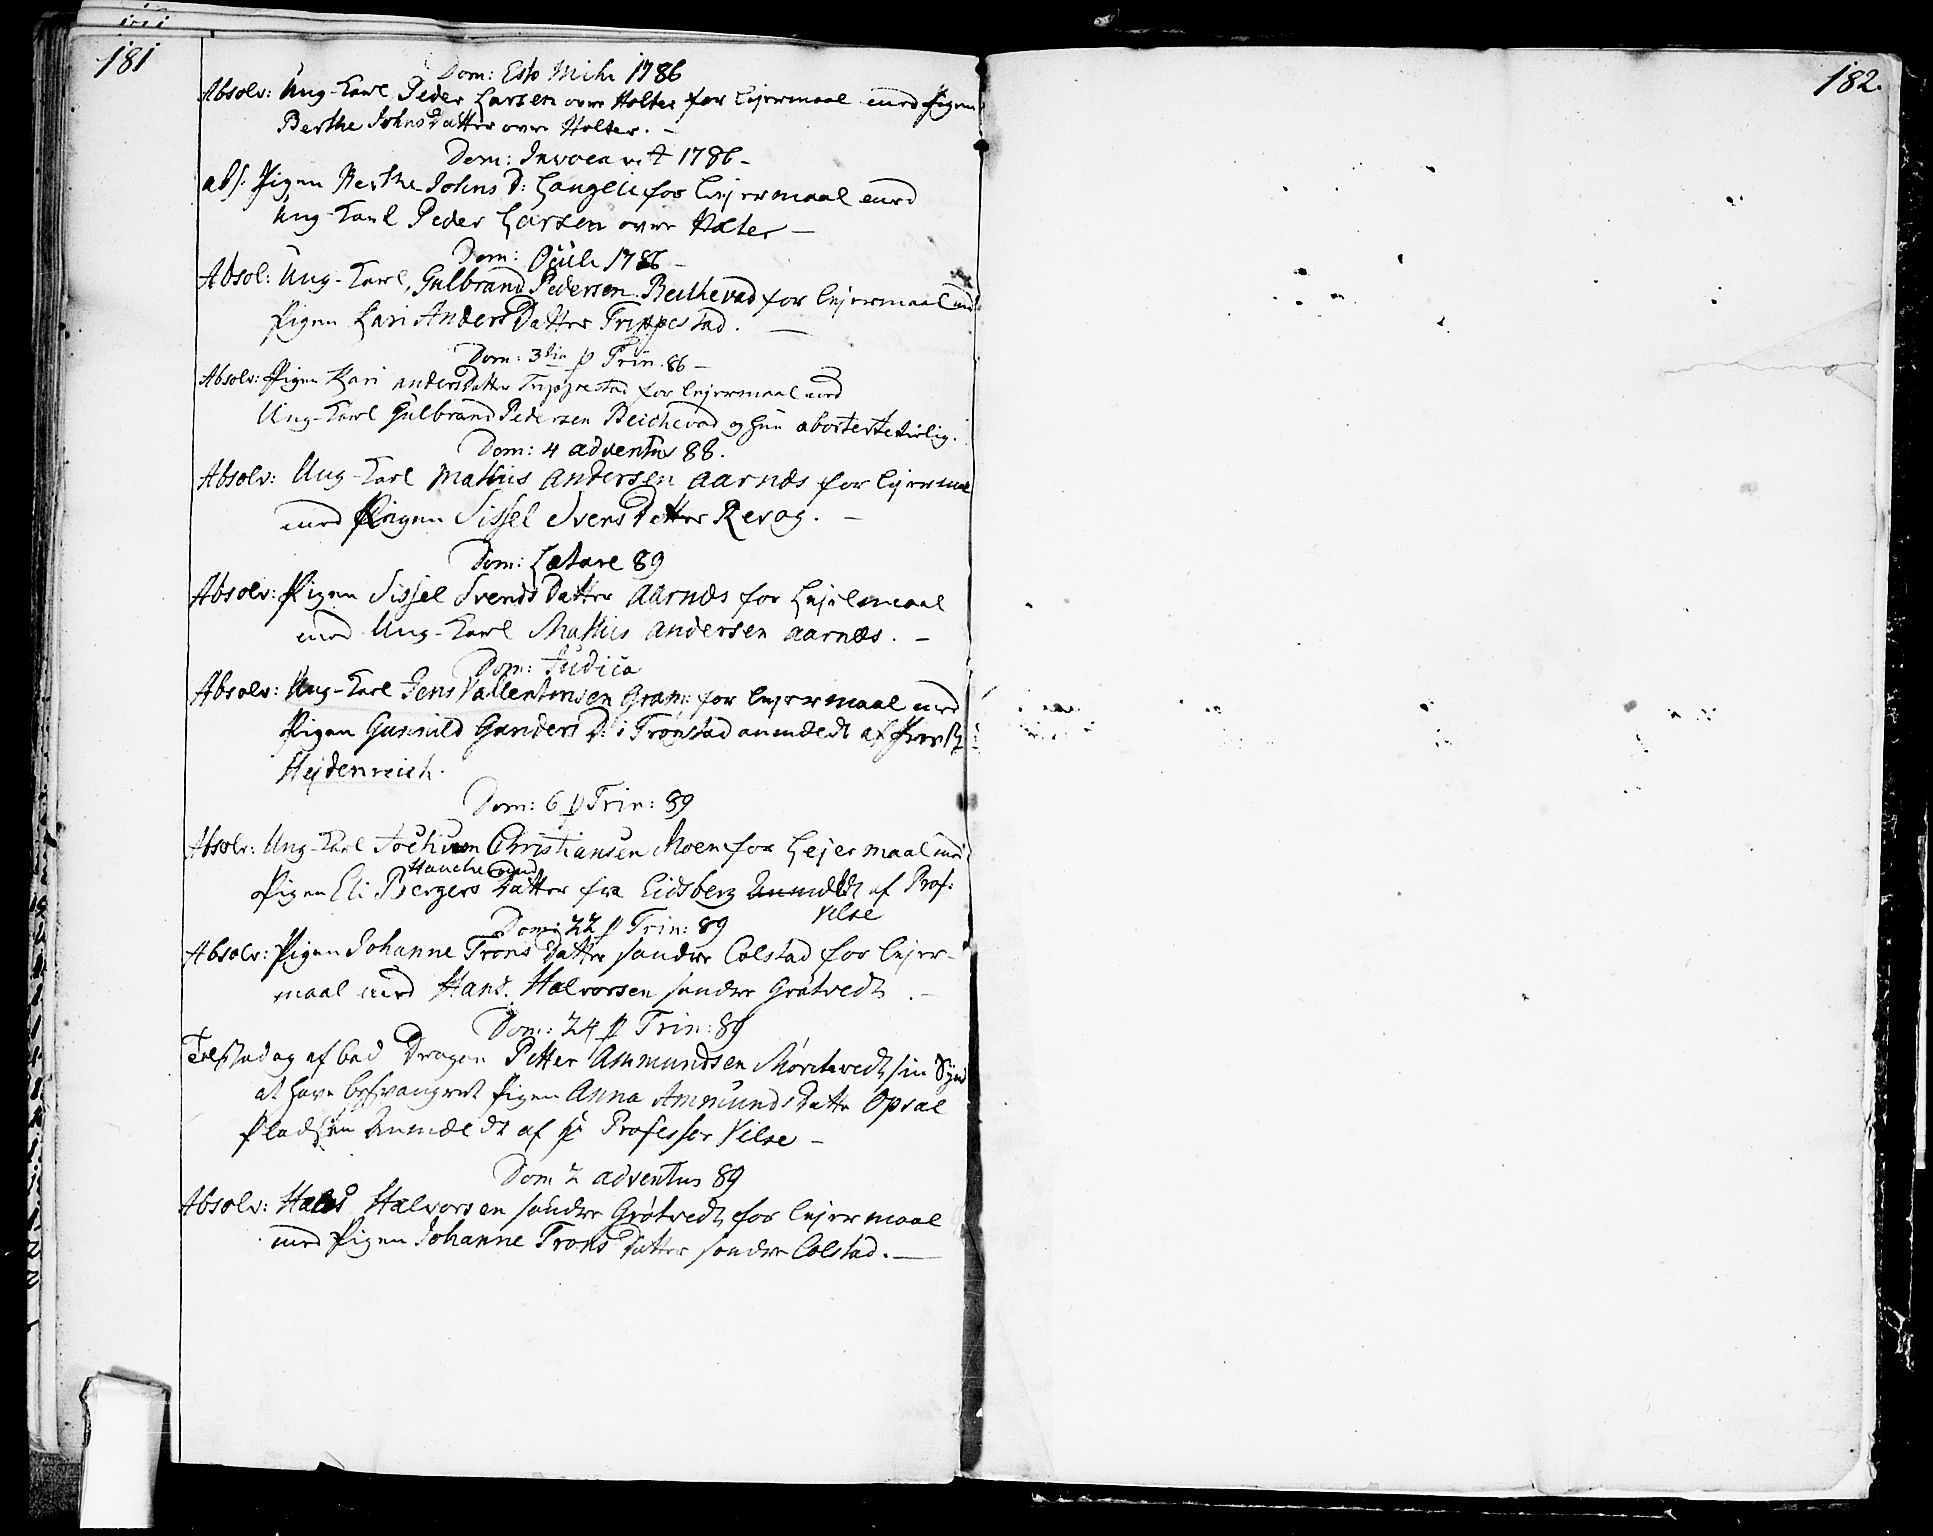 181
Dom: Esto Mihi 1786
Absolv: Ung-Karl Peder Larsen over Holter for Lejermaal med Pigen
Berthe JohnsDatter over Holter. –
Dom: Invocavit 1786 –
abs. Pigen Berthe Johns D: Langeli for Lejermaal med
Ung-Karl Peder Larsen over Holter –
Dom: Oculi 1786 –
Absol: Ung-Karl, Gulbrand Pedersen Beichevad for Lejermaal med
Pigen Kari AndersDatter Trippestad. –
Dom: 3tia p Trin. 86 –
Absolv: Pigen Kari andersDatter Trippestad for Lejermaal med
Ung-Karl Gulbrand Pedersen Beichevad og hun aborterte
Dom: 4 adventus 88.
Absolv: Ung-Karl Mathis Andersen Aarnæs for Lejermaal
med Pigen Sissel SvensDatter Revog. –
Dom: Lætare 89
Absolv: Pigen Sissel SvendsDatter Aarnæs for Lejelmaal
med Ung-Karl Mathis Andersen Aarnæs. –
Dom: Judica
Absolv: Ung-Karl Jens Vallentinsen Gram: for Lejermaal med
Pigen Gunnild Gunders D: i Tronstad anmeldt af
Hejdenreich.
Dom: 6 p Trin: 89
Absolv: Ung-Karl Jochum Christiansen Moen for Lejermaal med
Pigen Eli BergersDatter fra Eidsberg Anmeldt af Prof:
Vilse
Dom: 22 p Trin: 89
Absolv: Pigen Johanne TronsDatter søndre Colstad for Lejer-
maal med Hans Halvorsen søndre Grøtvedt. –
Dom: 24 p Trin: 89
Tilstod og afbad Dragon Petter Ammundsen Mørchvedt sin Synd
at have besvangret Pigen Anna AmmundsDatter Opsal
Pladsen Anmeldt af Professor Vilse –
Dom 2 adventus 89
Absolv: Hans Halvorsen søndre Grøtvedt for Lejermaal
med Pigen Johanne TronsDatter søndre Colstad. –
182.